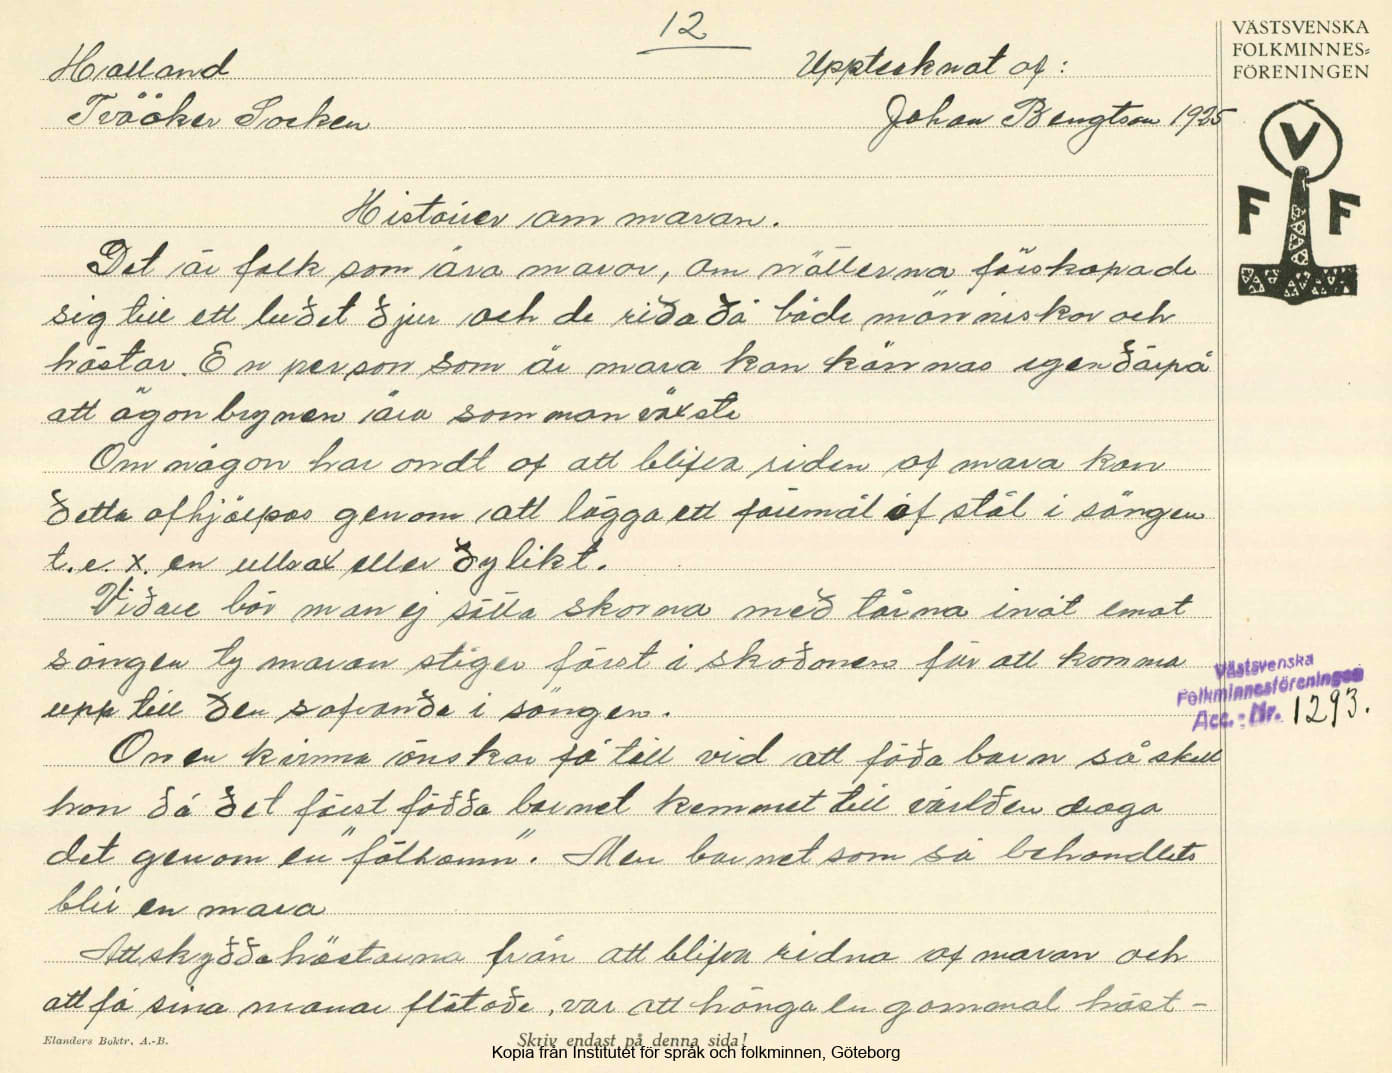 12
VÄSTSVENSKA
FOLKMINNES=
FÖRENINGEN
V
F F
Halland
Upptecknat af :
Tvååker Socken
Johan Bengtson 1925
Histörier om maran.
Det är folk som ära maror, om nätterna förskapade
sig till ett ludet djur och de rida då både människor och
hästar. En person som är mara kan kännas igen därpå
att ögonbrynen ära samman växte
Om någon har ondt af att blifva riden af mara kan
detta afhjälpas genom att lägga ett föremål af stål i sängen
t. e. x. en ullsax eller dylikt.
Vidare bör man ej sätta skorna med tårna inåt emot
sängen ty maran stiger först i skodonen för att komma
upp till den sofvande i sängen.
Om en kvinna önskar få till vid att föda barn så skall
hon då det först födda barnet kommet till världen draga
det genom en "fölhamn". Men barnet som så behandlats
blir en mara
Att skydda hästarna från att blifva ridna af maran och
att få sina manar flätade, var att hänga en gammal häst-
Västsvenska
Folkminnesföreningen
Acc. - Nr. 1293.
Elanders Boktr. A.-B.
Skriv endast på denna sida!
Kopia från Institutet för språk och folkminnen, Göteborg